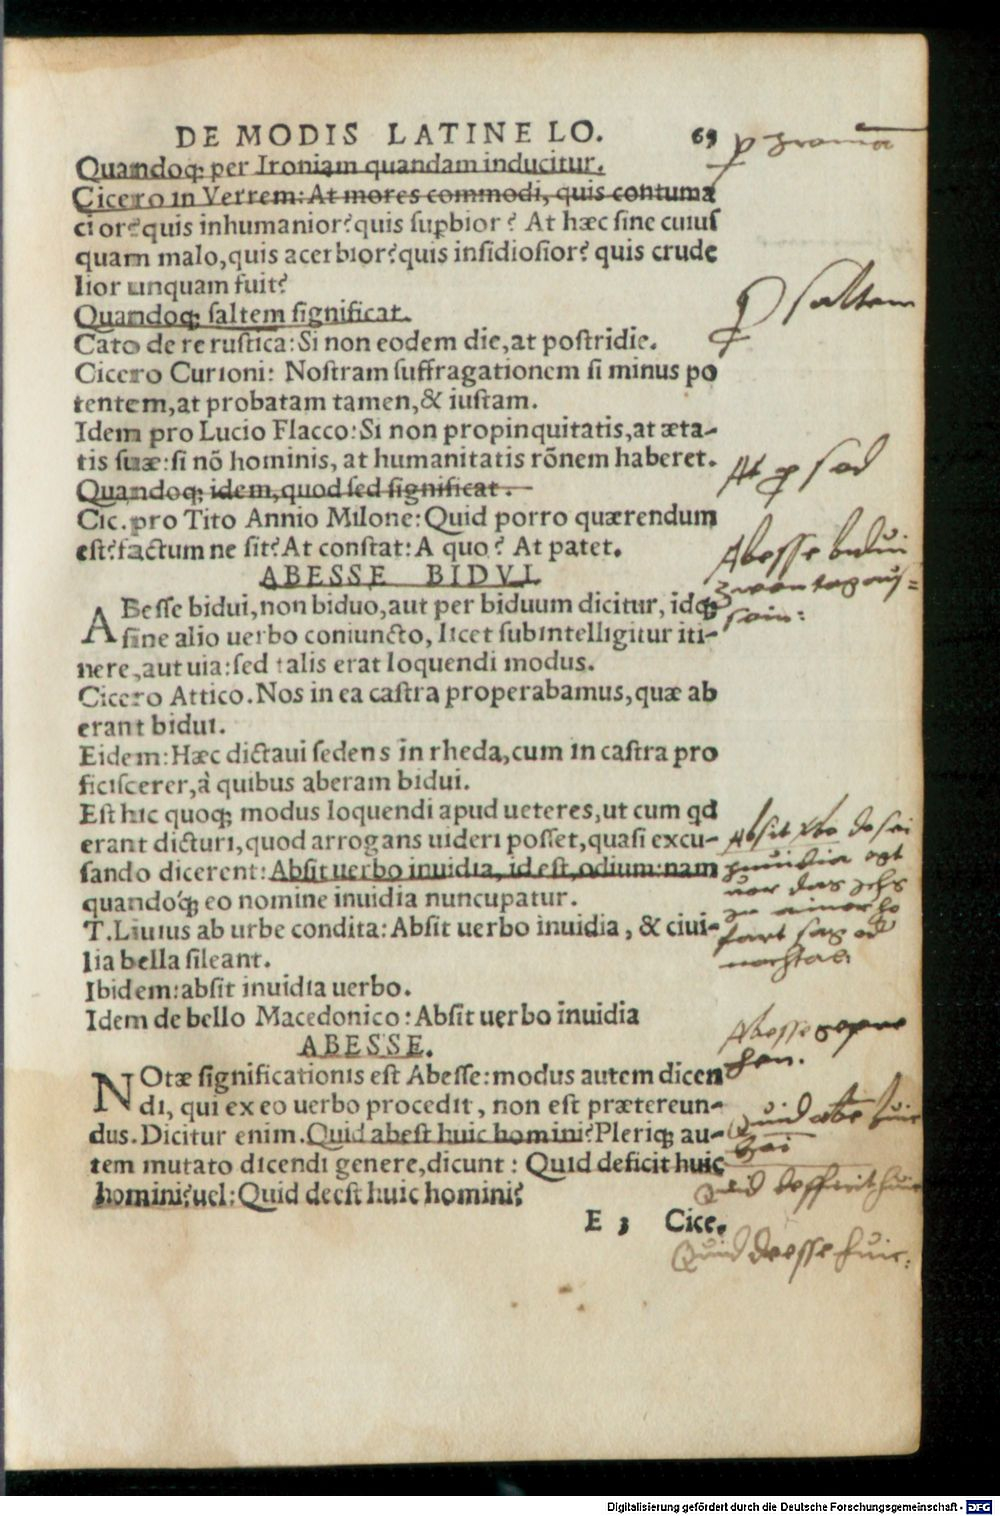 DE MODIS LATINE LO. 69
Quandoq; per Ironiam quandam inducitur.
Cicero in Verrem: At mores commodi, quis contuma
cior? quis inhumanior? quis supbior? At hæc sine cuius
quam malo, quis acerbior? quis insidiosior? quis crude
lior unquam fuit?
Quandoq; saltem significat.
saltem
Cato de re rustica: Si non eodem die, at postridie.
Cicero Curioni: Nostram suffragationem si minus po
tentem, at probatam tamen, & iustam.
Idem pro Lucio Flacco: Si non propinquitatis, at æta-
tis suæ: si nõ hominis, at humanitatis rõnem haberet.
At sed
Quandoq; idem, quod sed significat.
Cic. pro Tito Annio Milone: Quid porro quærendum
est? factum ne sit? At constat: A quo? At patet.
ABESSE BIDVI.
Abesse bidui
ABesse bidui, non biduo, aut per biduum dicitur, idq;
sine alio uerbo coniuncto, licet subintelligitur iti-
nere, aut uia: sed talis erat loquendi modus.
Cicero Attico. Nos in ea castra properabamus, quæ ab
erant bidui.
Eidem: Hæc dictaui sedens in rheda, cum in castra pro
ficiscerer, à quibus aberam bidui.
Est hic quoq; modus loquendi apud ueteres, ut cum qd
erant dicturi, quod arrogans uideri posset, quasi excu-
sando dicerent: Absit uerbo inuidia, id est, odium: nam
quandoq́; eo nomine inuidia nuncupatur.
T. Liuius ab urbe condita: Absit uerbo inuidia, & ciui-
lia bella sileant.
Ibidem: absit inuidia uerbo.
Idem de bello Macedonico: Absit uerbo inuidia
ABESSE.
Abesse
NOtæ significationis est Abesse: modus autem dicen
di, qui ex eo uerbo procedit, non est prætereun-
dus. Dicitur enim. Quid abest huic homini? Pleriq; au-
tem mutato dicendi genere, dicunt: Quid deficit huic
homini? uel: Quid deest huic homini?
E 3 Cice.
Quid deesse huic
Digitalisierung gefördert durch die Deutsche Forschungsgemeinschaft - DFG